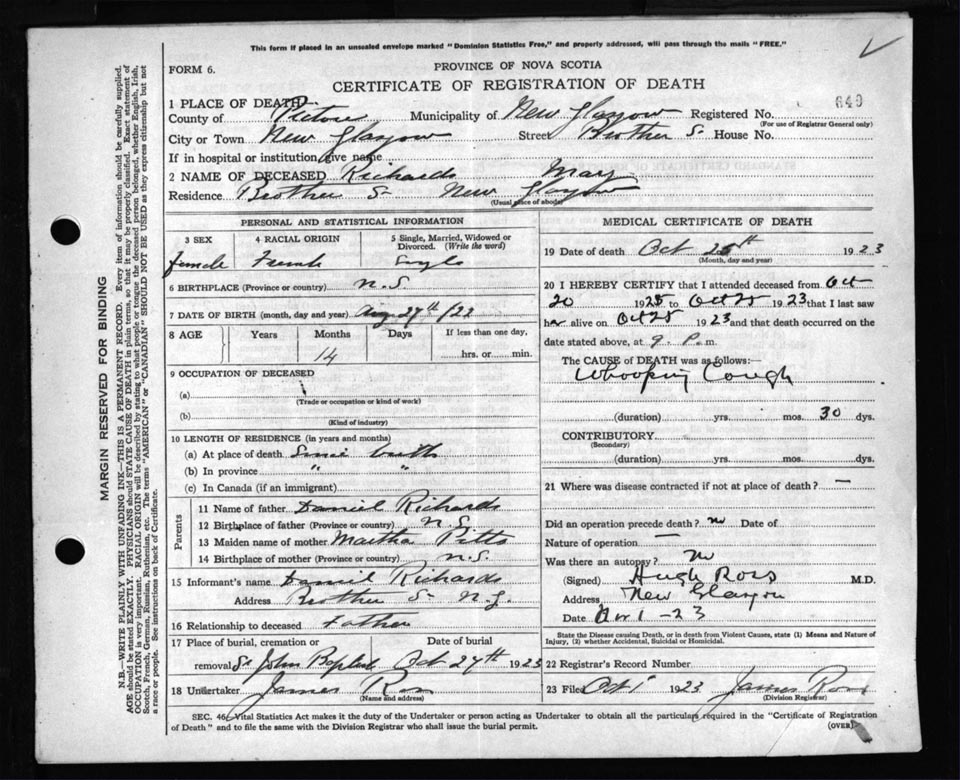 This form if placed in an unsealed envelope marked "Dominion Statistics Free," and properly addressed, will pass through the mails "FREE."
FORM 6.
PROVINCE OF NOVA SCOTIA
CERTIFICATE OF REGISTRATION OF DEATH
1 PLACE OF DEATH
County of Pictou Municipality of New Glasgow Registered No. 649
(For use of Registrar General only)
City or Town New Glasgow Street Brother St House No.
If in hospital or institution, give name
2 NAME OF DECEASED Richards Mary
Residence Brother St New Glasgow
(Usual place of abode)
PERSONAL AND STATISTICAL INFORMATION
3 SEX 4 RACIAL ORIGIN 5 Single, Married, Widowed or Divorced. (Write the word)
female French Single
6 BIRTHPLACE (Province or country) N.S
7 DATE OF BIRTH (month, day and year) Aug 27th/22
8 AGE Years Months Days If less than one day,
14 hrs. or min.
9 OCCUPATION OF DECEASED
(a)
(Trade or occupation or kind of work)
(b)
(Kind of industry)
10 LENGTH OF RESIDENCE (in years and months)
(a) At place of death Since birth
(b) In province " "
(c) In Canada (if an immigrant)
Parents
11 Name of father Daniel Richards
12 Birthplace of father (Province or country) N.S
13 Maiden name of mother Martha Pitts
14 Birthplace of mother (Province or country) N.S.
15 Informant's name Daniel Richards
Address Brother St N.G.
16 Relationship to deceased Father
17 Place of burial, cremation or Date of burial
removal St John Baptist Oct 27th 1923
18 Undertaker James Ross
(Name and address)
MEDICAL CERTIFICATE OF DEATH
19 Date of death Oct 25th 1923
(Month, day and year)
20 I HEREBY CERTIFY that I attended deceased from Oct
20 1923 to Oct 25 1923 that I last saw
her alive on Oct 25 1923 and that death occurred on the
date stated above, at 9. P. m.
The CAUSE of DEATH was as follows:—
Whooping Cough
(duration) yrs. mos. 30 dys.
CONTRIBUTORY
(Secondary)
(duration) yrs. mos. dys.
21 Where was disease contracted if not at place of death? —
Did an operation precede death? no Date of
Nature of operation —
Was there an autopsy? No
(Signed) Hugh Ross M.D.
Address New Glasgow
Date Nov 1-23
State the Disease causing Death, or in death from Violent Causes, state (1) Means and Nature of
Injury, (2) whether Accidental, Suicidal or Homicidal.
22 Registrar's Record Number
23 Filed Oct 1923 James Ross
(Division Registrar)
SEC. 46, Vital Statistics Act makes it the duty of the Undertaker or person acting as Undertaker to obtain all the particulars required in the "Certificate of Registration
of Death" and to file the same with the Division Registrar who shall issue the burial permit. (OVER)
MARGIN RESERVED FOR BINDING
N.B.—WRITE PLAINLY WITH UNFADING INK—THIS IS A PERMANENT RECORD. Every item of information should be carefully supplied.
AGE should be stated EXACTLY. PHYSICIANS should STATE CAUSE OF DEATH in plain terms, so that it may be properly classified. Exact statement of
OCCUPATION is very important. RACIAL ORIGIN will be described by stating to what people or tongue the deceased person belonged, whether English, Irish,
Scotch, French, German, Russian, Ruthenian, etc. The terms "AMERICAN" or "CANADIAN" SHOULD NOT BE USED as they express citizenship but not
a race or people. See instructions on back of Certificate.